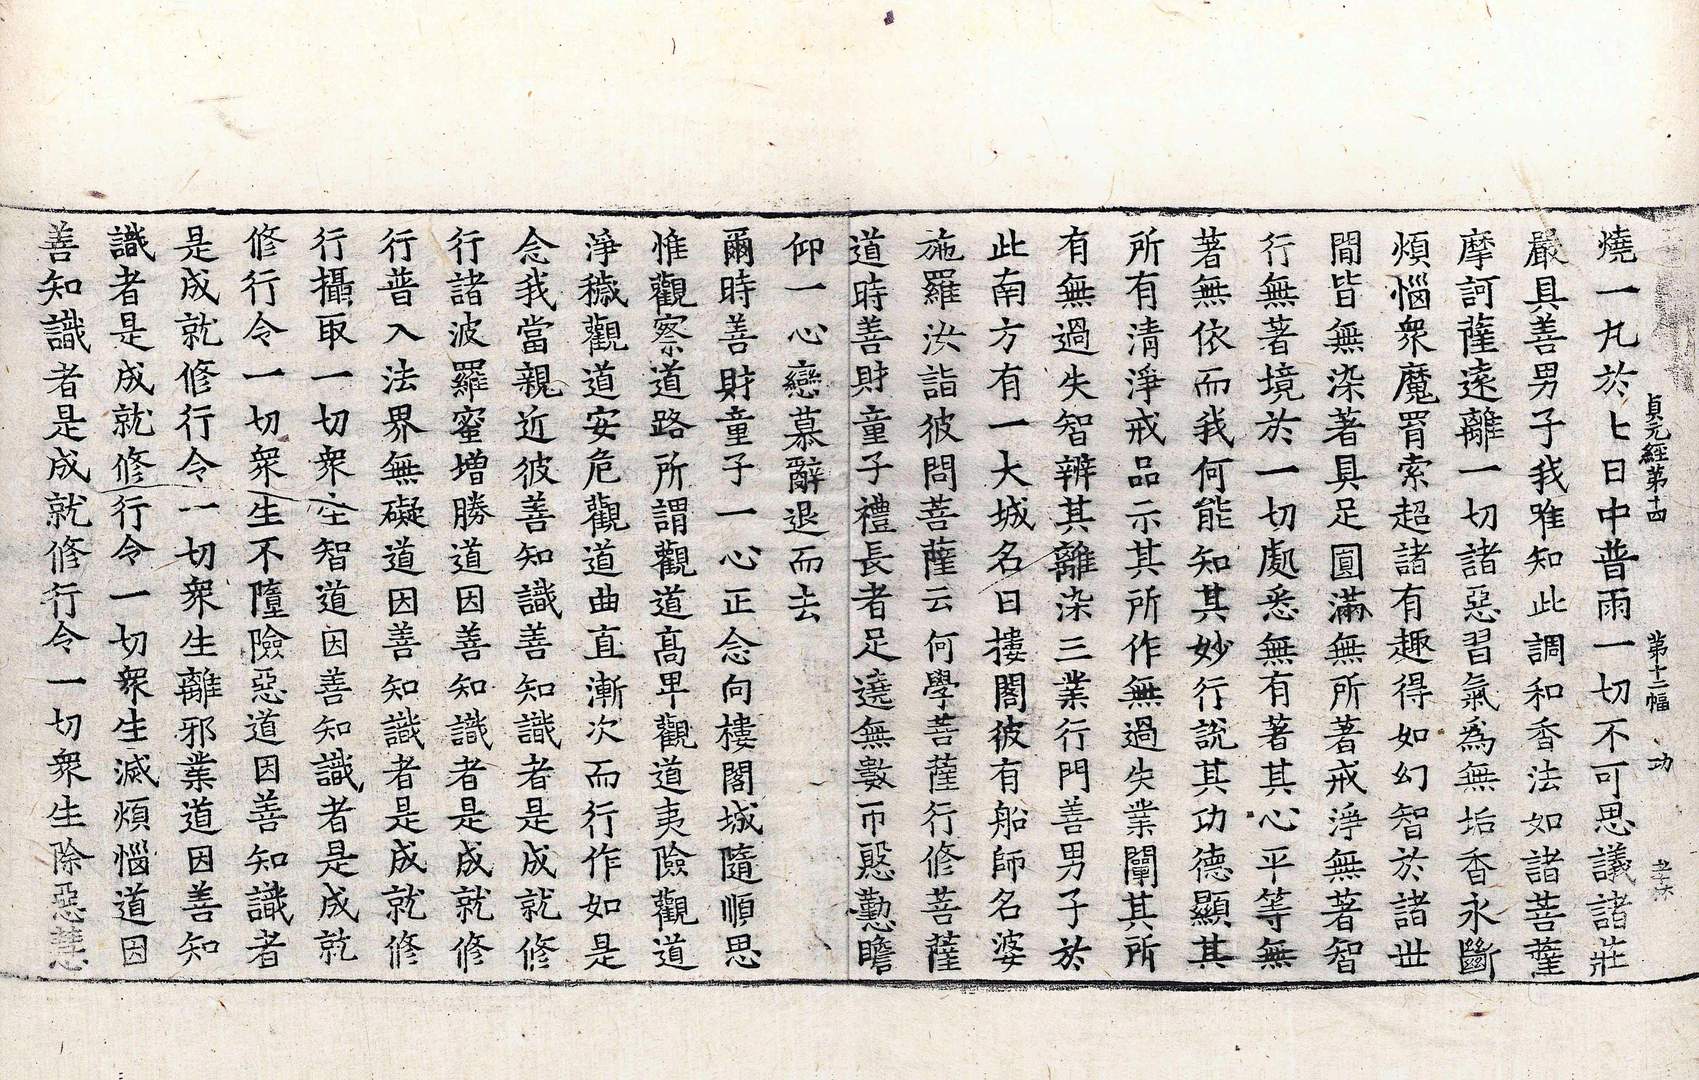 貞元經第十四　第十二幅　功
燒一丸於七日中普雨一切不可思議諸莊
嚴具善男子我唯知此調和香法如諸菩薩
摩訶薩遠離一切諸惡習氣爲無垢香永斷
煩惱衆魔罥索超諸有趣得如幻智於諸世
閒皆無染著具足圓滿無所著戒淨無著智
行無著境於一切處悉無有著其心平等無
著無依而我何能知其妙行說其功德顯其
所有清淨戒品示其所作無過失業闡其所
有無過失智辨其離染三業行門善男子於
此南方有一大城名曰樓閣彼有船師名婆
施羅汝詣彼問菩薩云何學菩薩行修菩薩
道時善財童子禮長者足遶無數帀慇懃瞻
仰一心戀慕辭退而去
爾時善財童子一心正念向樓閣城隨順思
惟觀察道路所謂觀道高卑觀道夷險觀道
淨穢觀道安危觀道曲直漸次而行作如是
念我當親近彼善知識善知識者是成就修
行諸波羅蜜增勝道因善知識者是成就修
行普入法界無礙道因善知識者是成就修
行攝取一切衆生智道因善知識者是成就
修行令一切衆生不墮險惡道因善知識者
是成就修行令一切衆生離邪業道因善知
識者是成就修行令一切衆生滅煩惱道因
善知識者是成就修行令一切衆生除惡慧